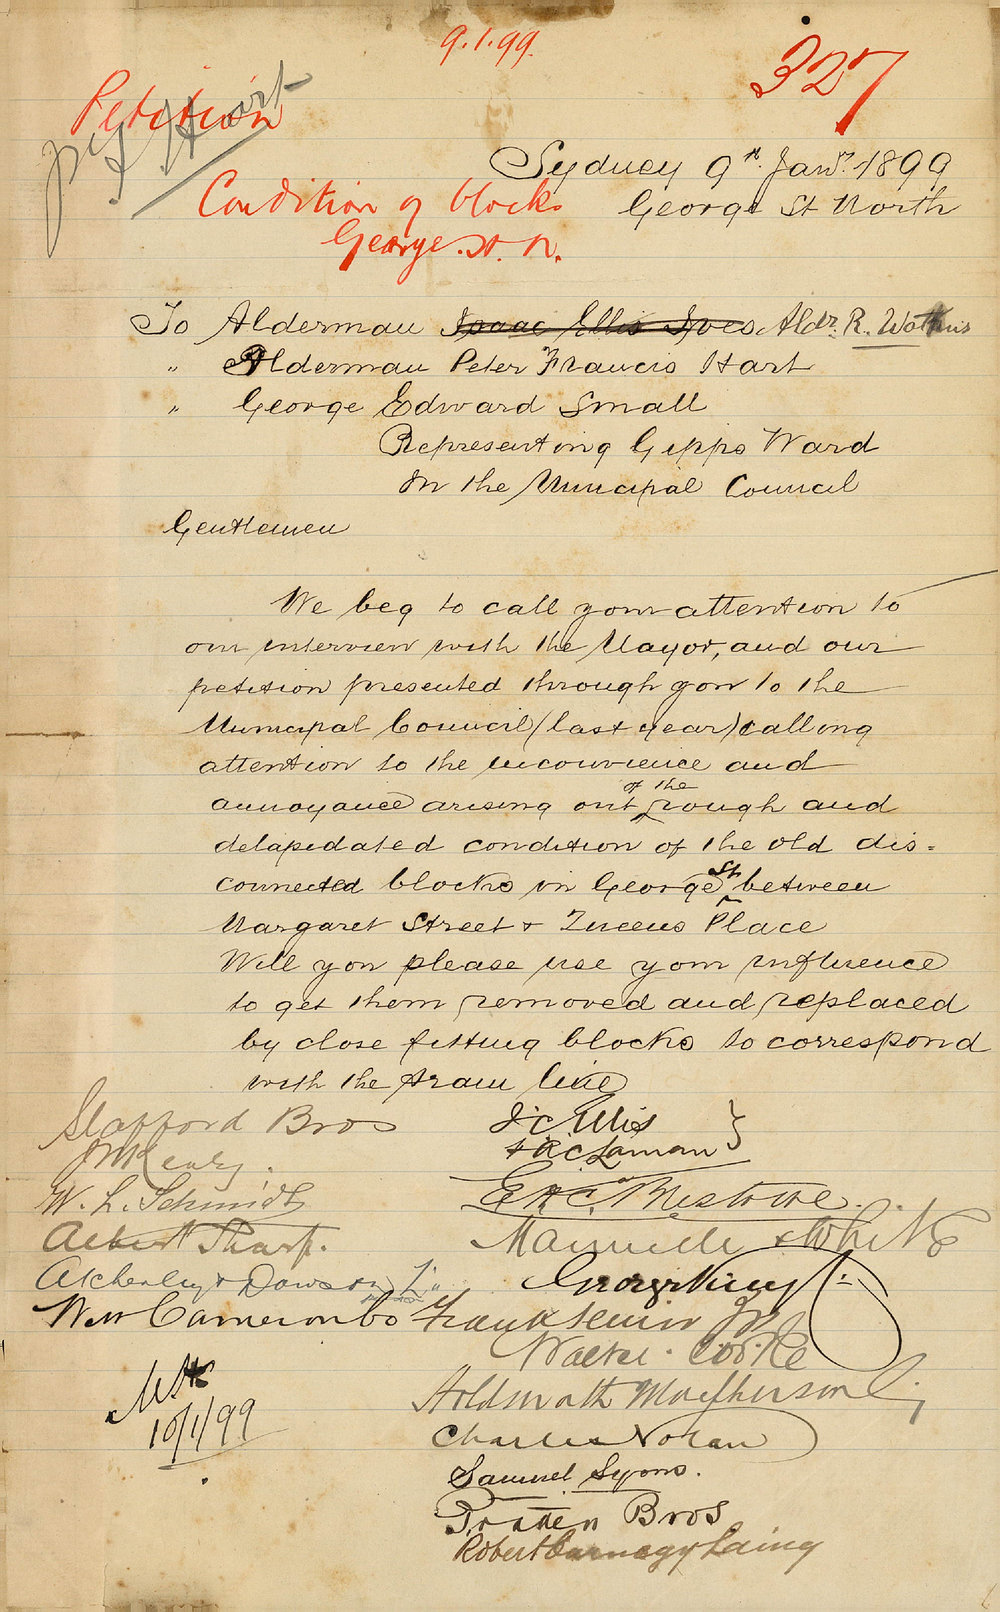 9.1.99.
327
Petition
Hart
Condition of blocks
George St. N.
Sydney 9th Jany. 1899
George St North
To Alderman Isaac Ellis Ives Aldr. R. Watkins
" Alderman Peter Francis Hart
" George Edward Small
Representing Gipps Ward
In the Municipal Council
Gentlemen
We beg to call your attention to
our interview with the Mayor, and our
petition presented through you to the
Municipal Council (last year) calling
attention to the inconvience and
annoyance arising out of the rough and
delapedated condition of the old dis=
connected blocks in George St between
Margaret Street & Queens Place
Will you please use your influence
to get them removed and replaced
by close fitting blocks to correspond
with the tram line
Slapford Bros
W. L. Schmidt
Albert Sharp.
& Dawson
Wm Cameron & Co
J C Ellis
& R C Laman
E & C.
& White
George King
Frank Senior
Walter Cooke
Holdsworth Macpherson & Co
Charles Nolan
Samuel Lyons.
Pratten Bros
Robert Carnegy Laing
10/1/99